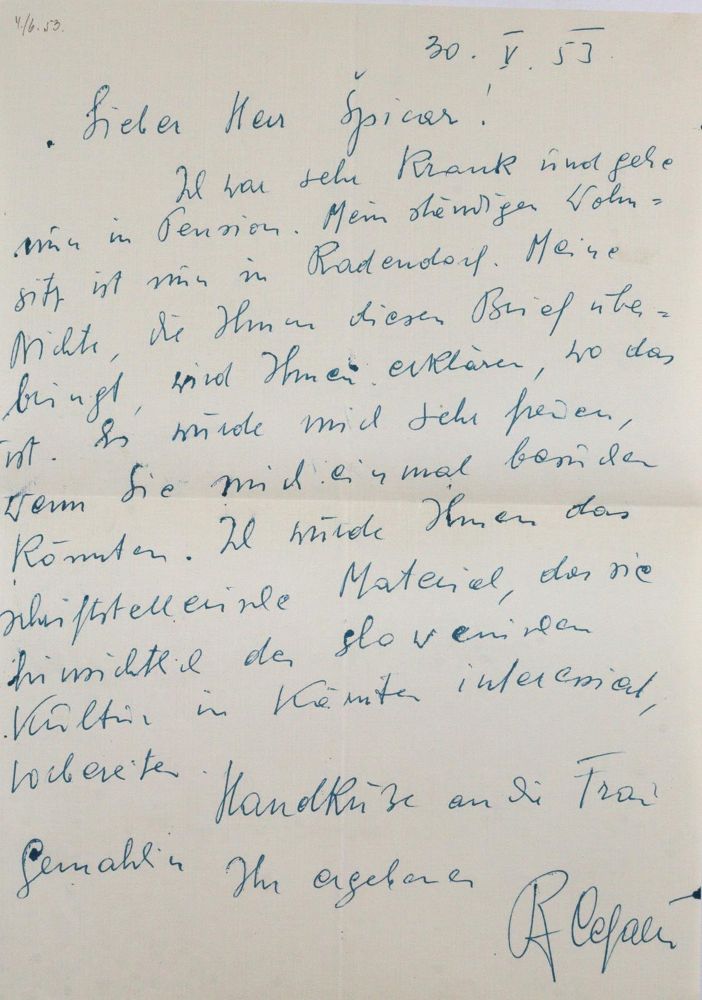 4./6. 53.
30. V. 53
Lieber Herr Špicar!
Ich war sehr Krank und gehe
nun in Pension. Mein ständiger Wohn=
sitz ist nun in Radendorf. Meine
Nichte, die Ihnen diesen Brief über=
bringt, wird Ihnen erklären, wo das
ist. Es würde mich sehr freuen,
wenn Sie mich einmal besuchen
Könnten. Ich würde Ihnen das
schriftstellerische Material, das sie
hinsichtlich der slowenischen
Kultur in Kärnten interessiert,
vorbereiten.
Handküsse an die Frau
Gemahlin Ihr ergebener